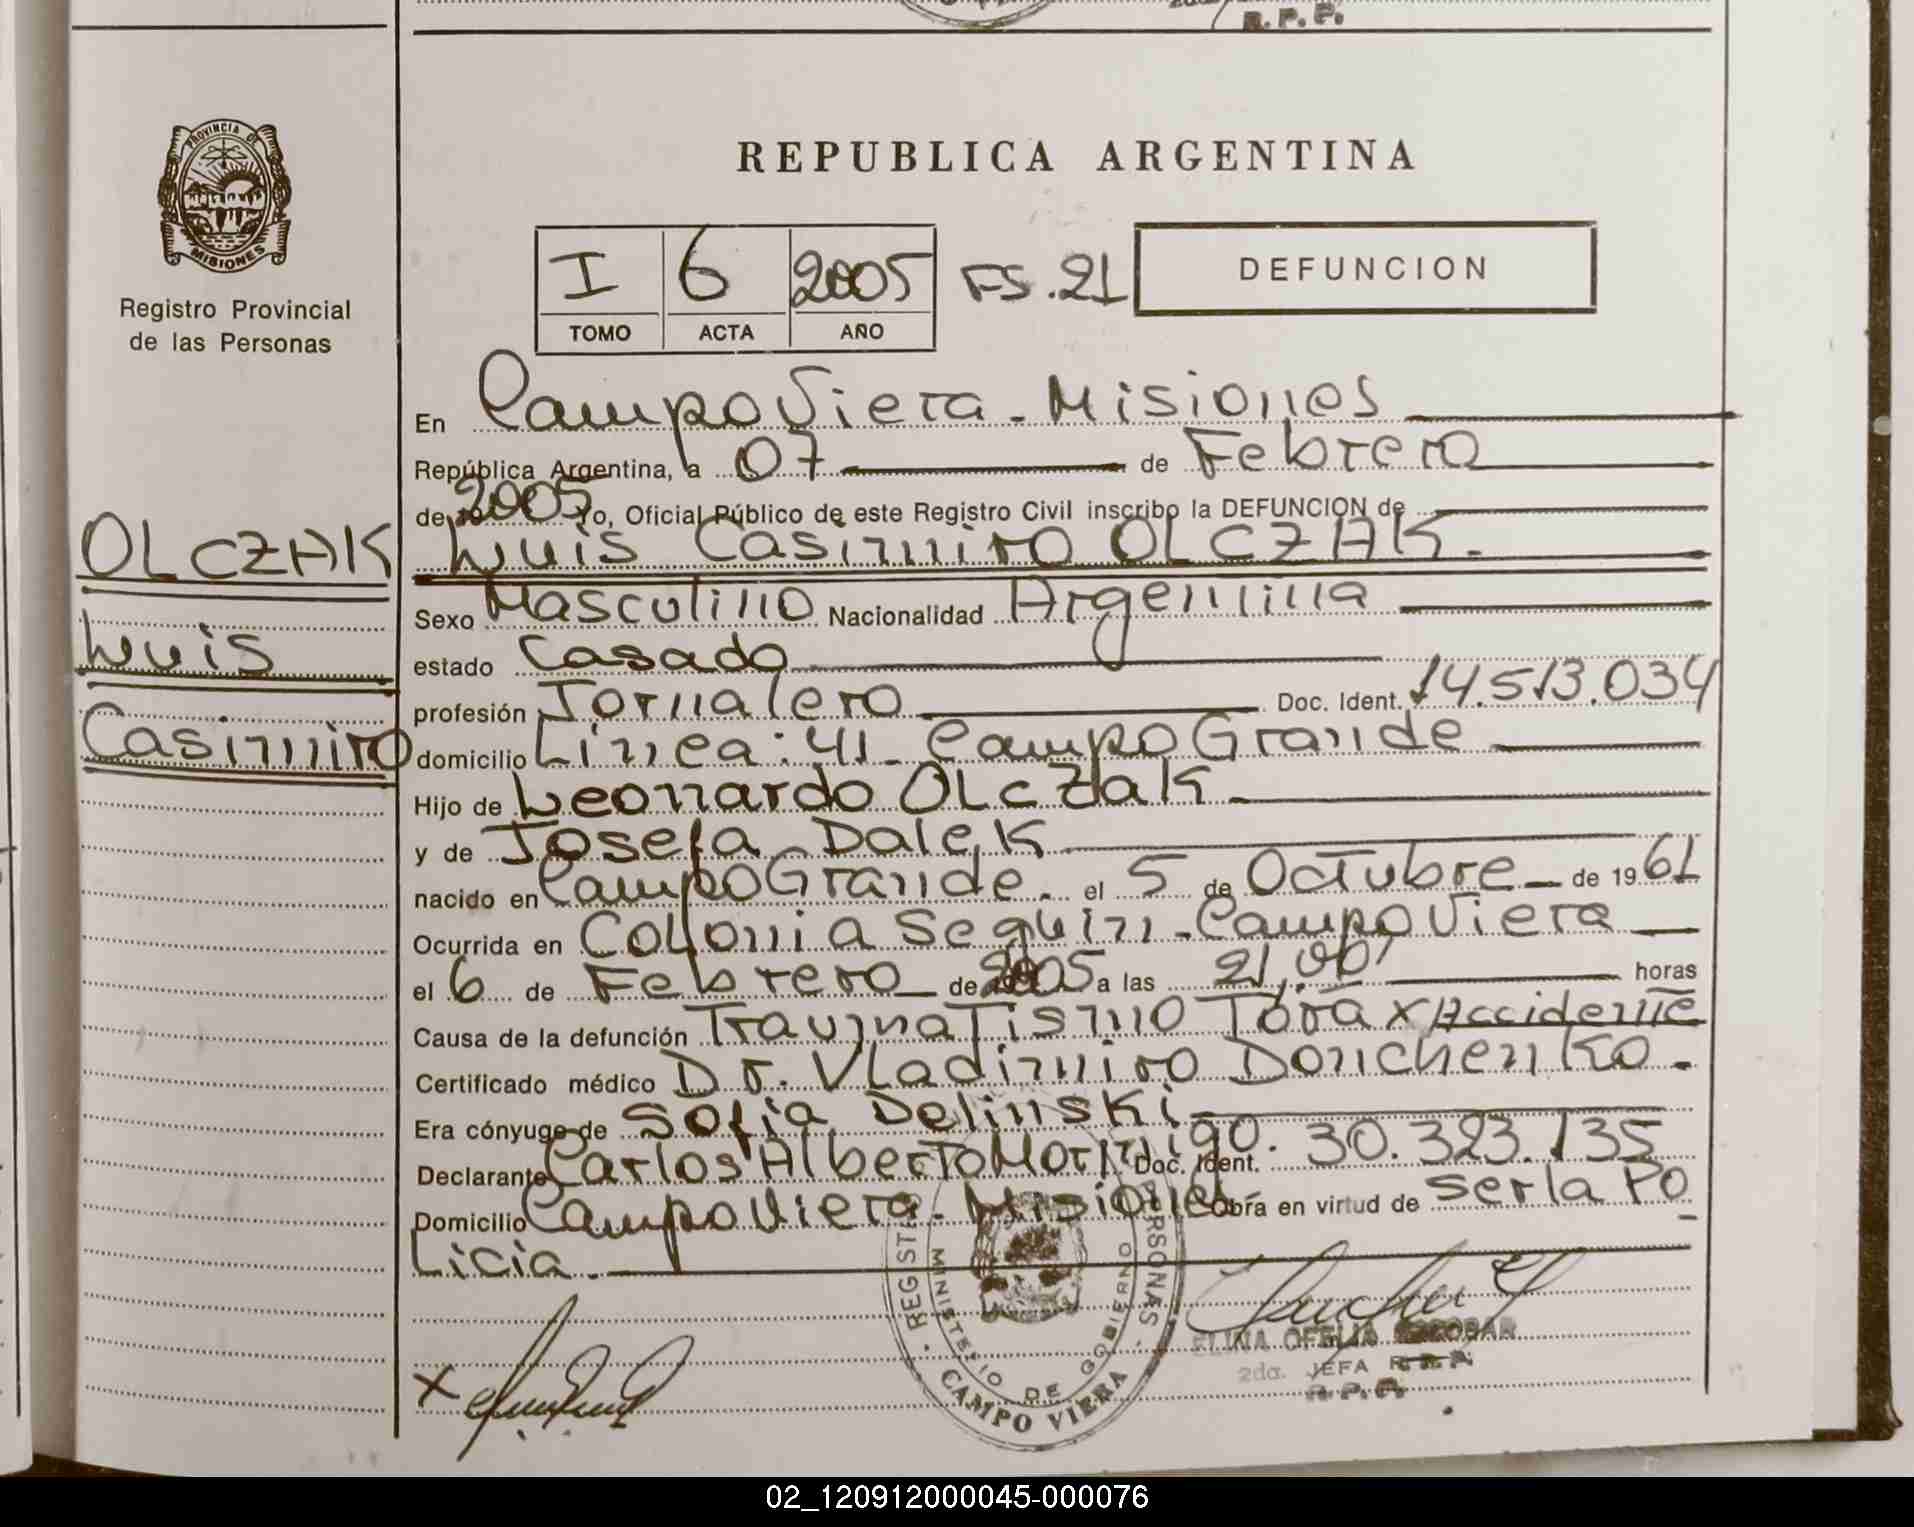 R.P.P.
PROVINCIA DE
MISIONES
Registro Provincial
de las Personas
REPUBLICA ARGENTINA
I 6 2005 FS.21
TOMO ACTA AÑO
DEFUNCION
En Campo Viera - Misiones
República Argentina, a 07 de Febrero
de 2005 Yo, Oficial Público de este Registro Civil inscribo la DEFUNCION de
OLCZAK
Luis Casimiro OLCZAK.
Sexo Masculino Nacionalidad Argentina
Luis
estado Casado
profesión Jornalero Doc. Ident. 14.513.034
Casimiro
domicilio Linea: 41 - Campo Grande
Hijo de Leonardo OLCZAK -
y de Josefa Dalek
nacido en Campo Grande. el 5 de Octubre de 1961
Ocurrida en Colonia Seguin - Campo Viera
el 6 de Febrero de 2005 a las 21,00' horas
Causa de la defunción Traumatismo Tórax Accidente
Certificado médico Dr. Vladimiro Donchenko.
Era cónyuge de Sofia Delinski -
Declarante Carlos Alberto Morinigo. Doc. Ident. 30.323.135
Domicilio Campo Viera - Misiones Obra en virtud de ser la Po
licia.
MINISTERIO DE GOBIERNO
CAMPO VIERA
ELINA OFELIA ESCOBAR
2da. JEFA
R.P.P.
X
02_120912000045-000076